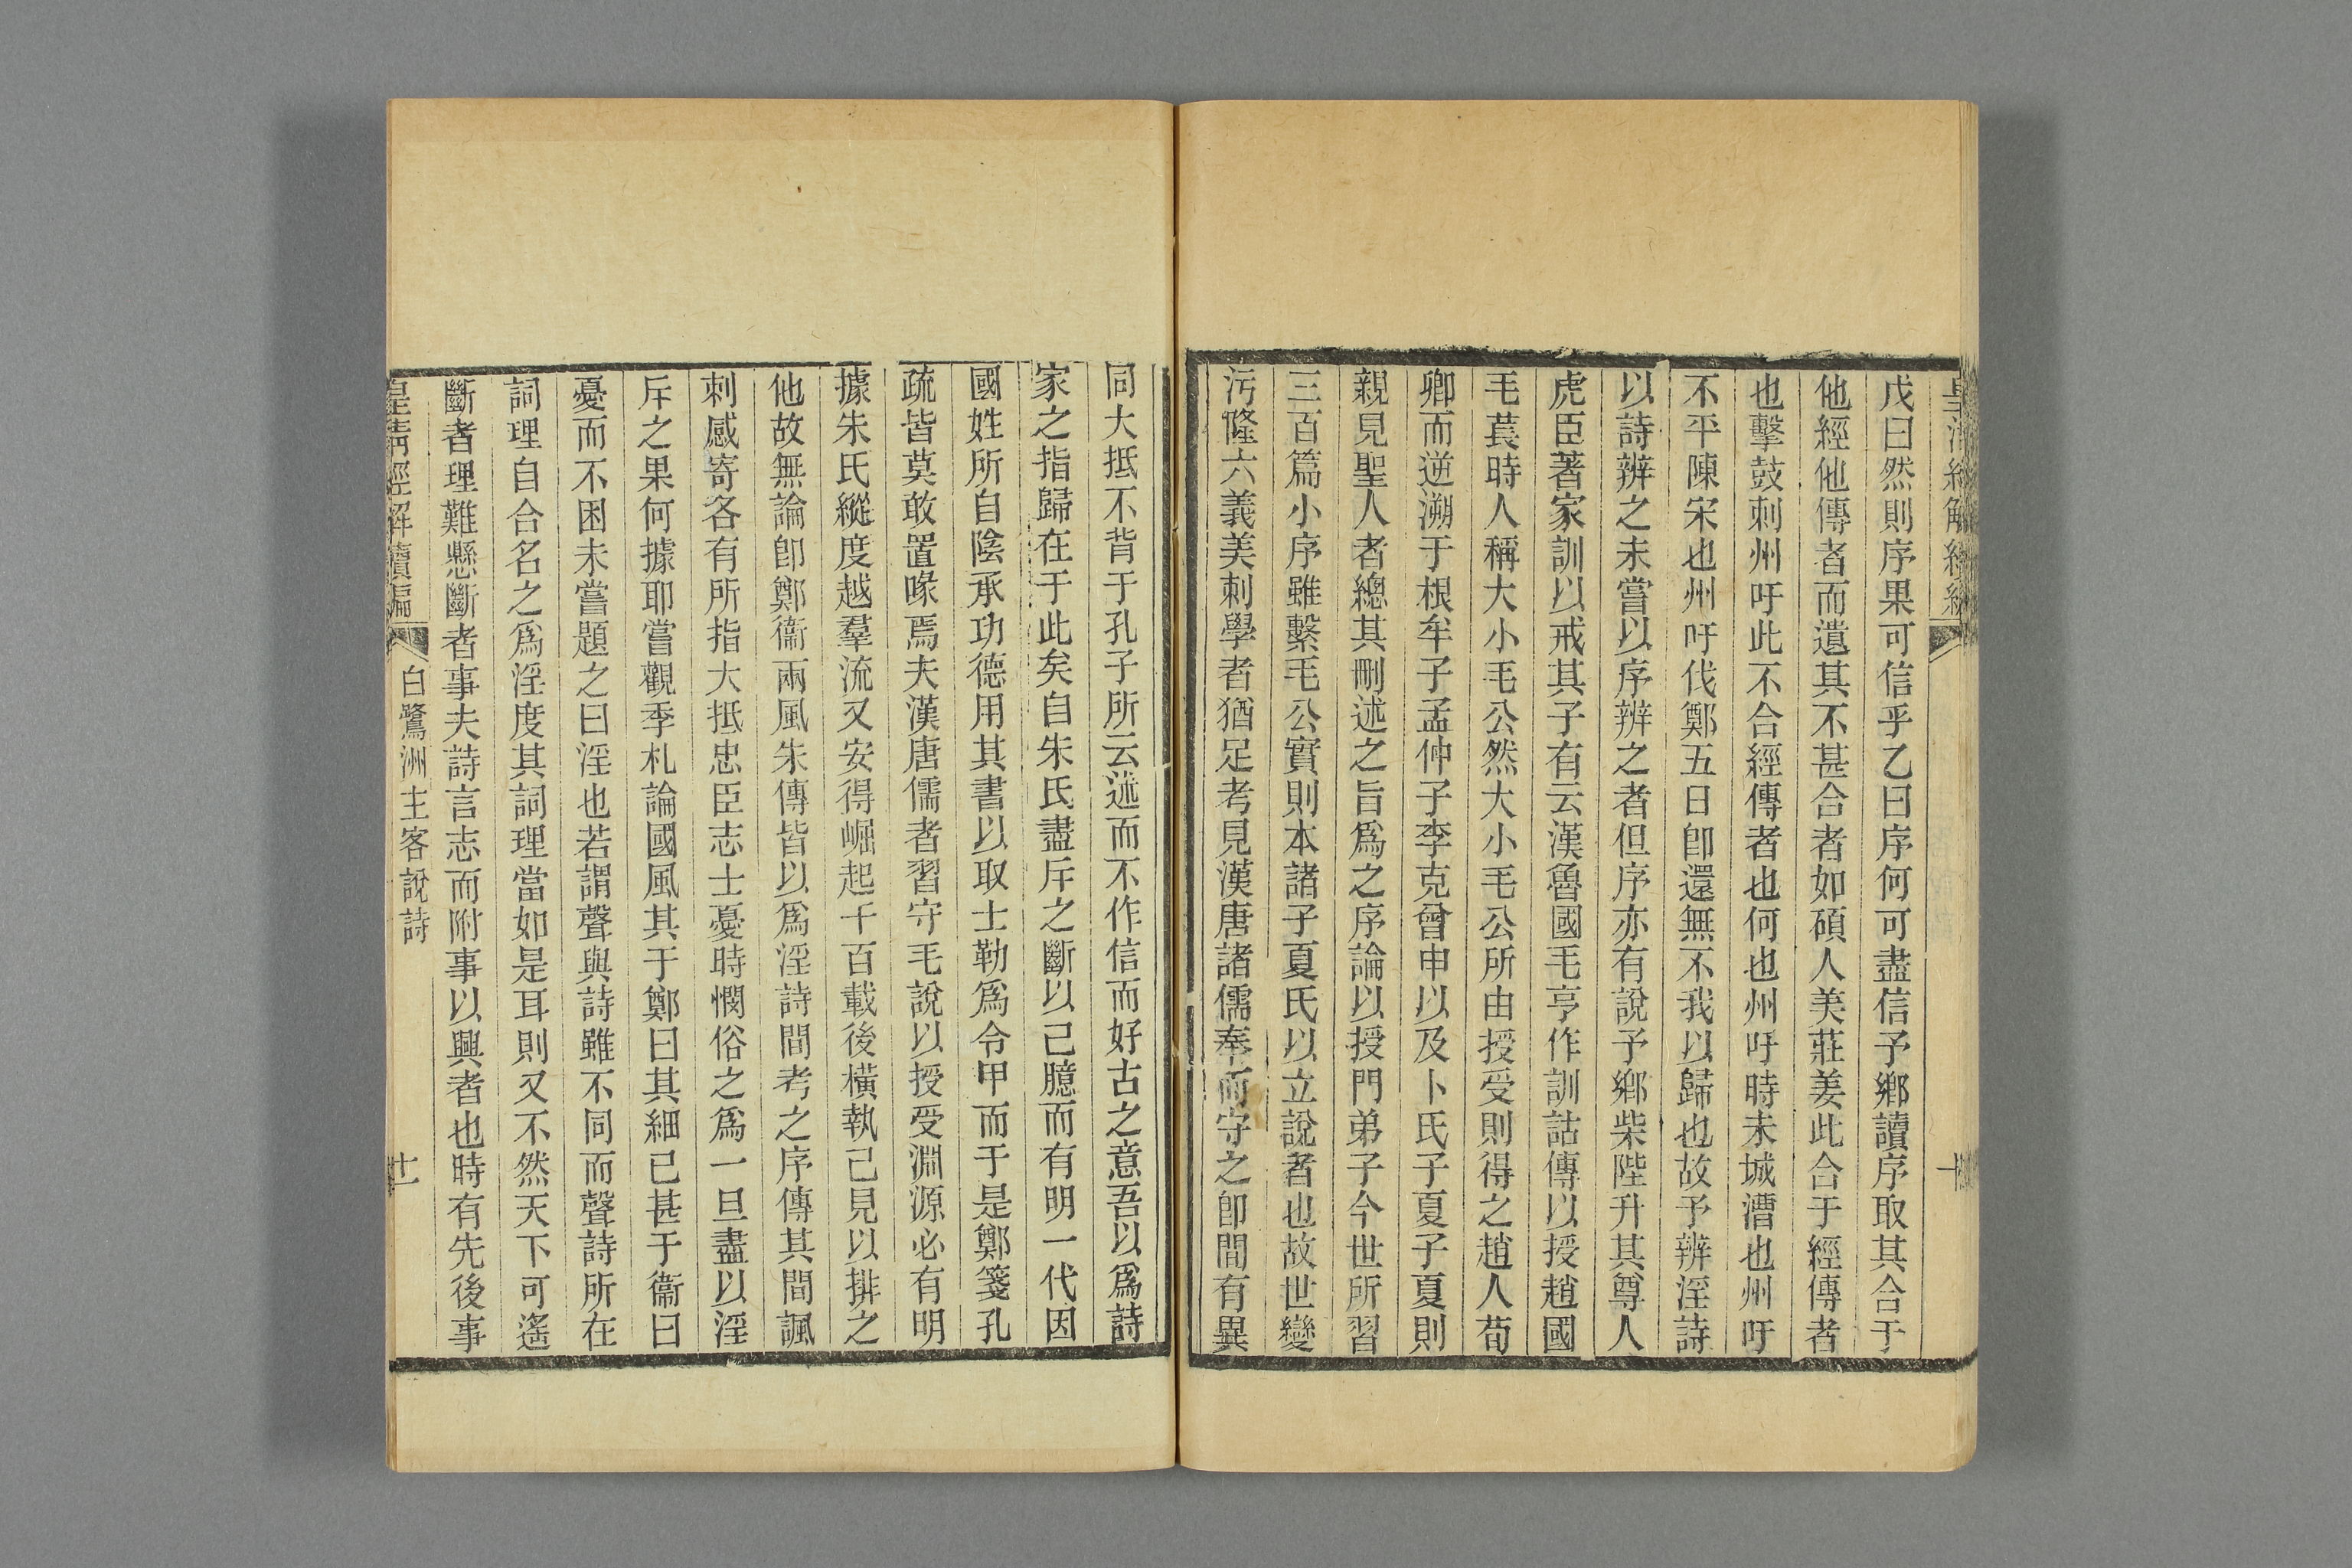 戊曰然則序果可信乎乙曰序何可盡信予鄉讀序取其合于
他經他傳者而遺其不甚合者如碩人美莊姜此合于經傳者
也擊鼓刺州吁此不合經傳者也何也州吁時未城漕也州吁
不平陳宋也州吁伐鄭五日卽還無不我以歸也故予辨淫詩
以詩辨之未嘗以序辨之者但序亦有說予鄉柴陛升其尊人
虎臣著家訓以戒其子有云漢魯國毛亨作訓詁傳以授趙國
毛萇時人稱大小毛公然大小毛公所由授受則得之趙人荀
卿而逆溯于根牟子孟仲子李克曾申以及卜氏子夏子夏則
親見聖人者總其刪述之旨爲之序論以授門弟子今世所習
三百篇小序雖繫毛公實則本諸子夏氏以立說者也故世變
污隆六義美刺學者猶足考見漢唐諸儒奉而守之卽間有異
同大抵不背于孔子所云述而不作信而好古之意吾以爲詩
家之指歸在于此矣自朱氏盡斥之斷以己臆而有明一代因
國姓所自陰承功德用其書以取士勒爲令甲而于是鄭箋孔
疏皆莫敢置喙焉夫漢唐儒者習守毛說以授受淵源必有明
據朱氏縱度越羣流又安得崛起千百載後橫執己見以排之
他故無論卽鄭衞兩風朱傳皆以爲淫詩間考之序傳其間諷
刺感寄各有所指大抵忠臣志士憂時憫俗之爲一旦盡以淫
斥之果何據耶嘗觀季札論國風其于鄭曰其細已甚于衞曰
憂而不困未嘗題之曰淫也若謂聲與詩雖不同而聲詩所在
詞理自合名之爲淫度其詞理當如是耳則又不然天下可遙
斷者理難懸斷者事夫詩言志而附事以興者也時有先後事
皇清經解續編
白鷺洲主客說詩
十一